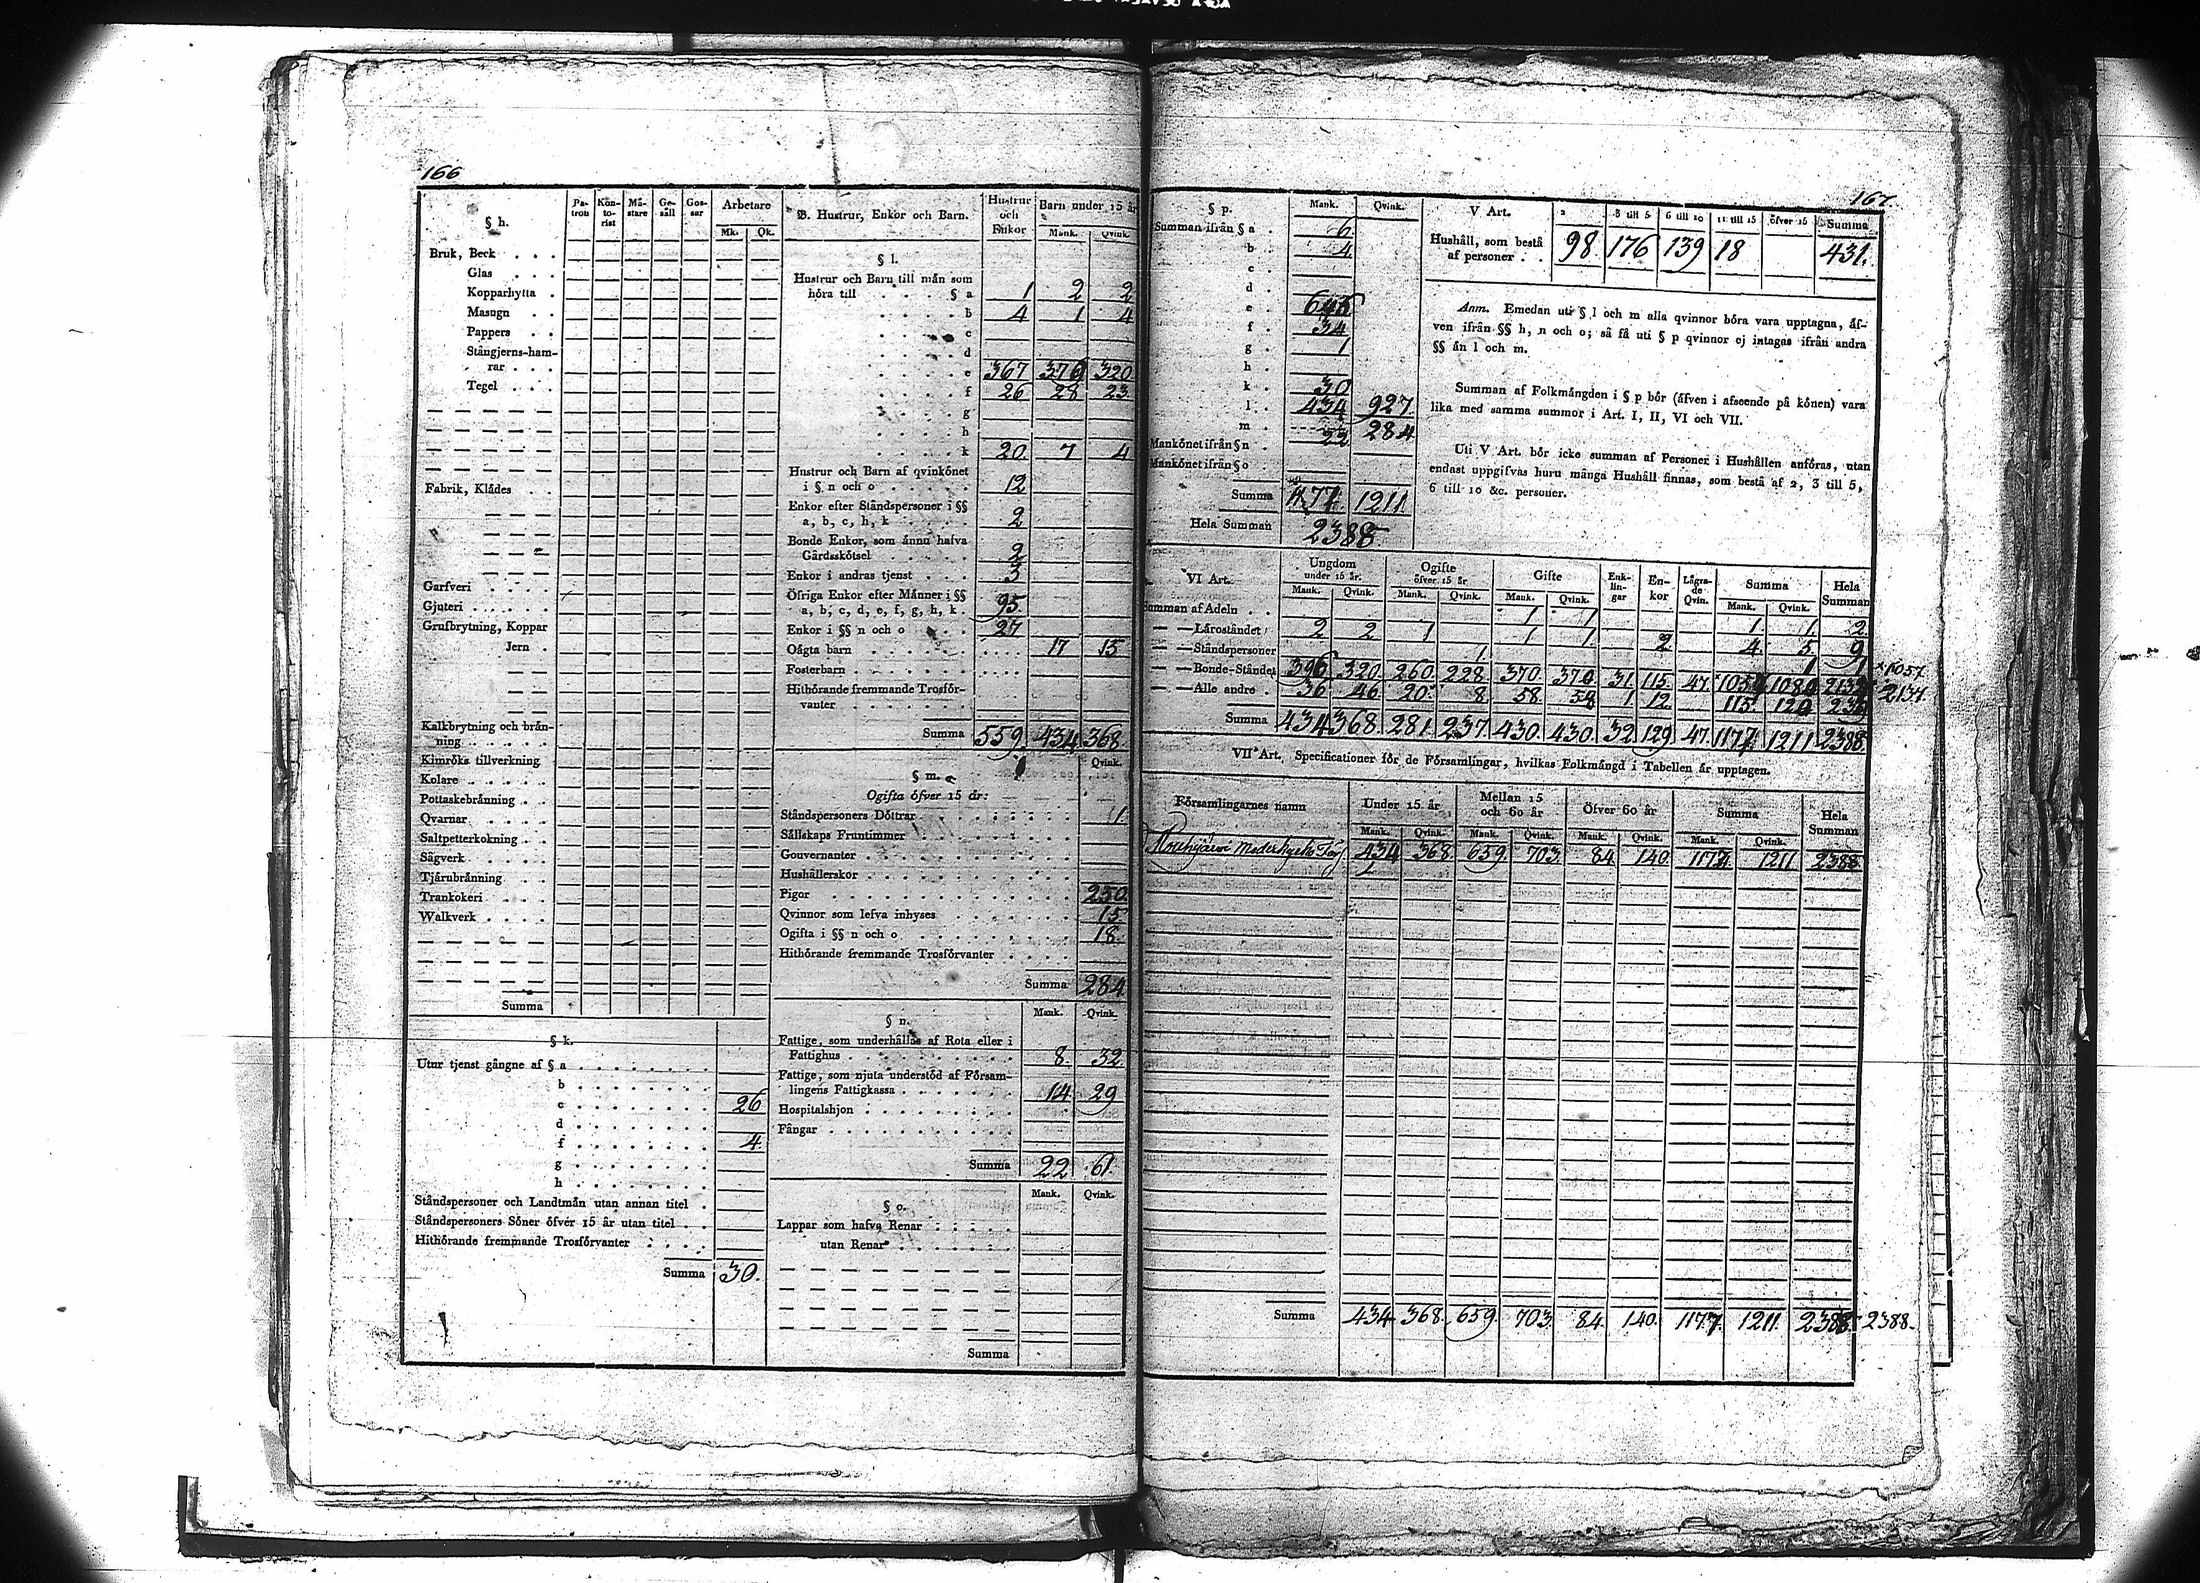 166
§ h.
Pa-tron Kon-to-rist Mä-stare Ge-säll Gos-sar Arbetare
Mk. Qk.
Bruk, Beck
Glas
Kopparhytta
Masugn
Pappers
Stångjerns-ham-
rar
Tegel
Fabrik, Klådes
Garfveri
Gjuteri
Grufbrytning, Koppar
Jern
Kalkbrytning och brån-
ning
Kimröks tillverkning
Kolare
Pottaskebränning
Qvarnar
Saltpetterkokning
Sågverk
Tjärubränning
Trankokeri
Walkverk
Summa
§ k.
Utur tjenst gångne af § a
b
c 26
d
f 4
g
h
Ståndspersoner och Landtmän utan annan titel
Ståndspersoners Söner öfver 15 år utan titel
Hithörande fremmande Trosförvanter
Summa 30.
B. Hustrur, Enkor och Barn. Hustrur och Enkor Barn under 15 år
Mank. Qvink.
§ l.
Hustrur och Barn till män som
höra till § a 1 2 2
b 4 1 4
c
d
e 367 376 320
f 26 28 23
g
h
k 20. 7 4
Hustrur och Barn af qvinkönet
i § n och o 12
Enkor efter Ståndspersoner i §§
a, b, c, h, k 2
Bonde Enkor, som ännu hafva
Gårdsskötsel 2
Enkor i andras tjenst 3
Öfriga Enkor efter Männer i §§
a, b, c, d, e, f, g, h, k 95.
Enkor i §§ n och o 27
Oägta barn 17 15
Fosterbarn
Hithörande fremmande Trosför-
vanter
Summa 559. 434 368.
§ m.
Qvink.
Ogifta öfver 15 år:
Ståndspersoners Döttrar 1
Sällskaps Fruntimmer
Gouvernanter
Hushållerskor
Pigor 250.
Qvinnor som lefva inhyses 15
Ogifta i §§ n och o 18.
Hithörande fremmande Trosförvanter
Summa 284
§ n.
Mank. Qvink.
Fattige, som underhållas af Rota eller i
Fattighus 8. 32
Fattige, som njuta understöd af Försam-
lingens Fattigkassa 14 29
Hospitalshjon
Fångar
Summa 22 61.
§ o.
Mank. Qvink.
Lappar som hafva Renar
utan Renar
Summa
167.
§ p. Mank. Qvink.
Summan ifrån § a 6
b 4
c
d
e
f 34
g 1
h
k 30
l 434 927
m 284
Mankönet ifrån § n 22
Mankönet ifrån § o
Summa 1177. 1211
Hela Summan 2388
V Art. 2 3 till 5 6 till 10 11 till 15 öfver 15 Summa
Hushåll, som bestå
af personer 98. 176 139 18 431.
Anm. Emedan uti § l och m alla qvinnor böra vara upptagna, äf-
ven ifrån §§ h, n och o; så få uti § p qvinnor ej intagas ifrån andra
§§ än l och m.
Summan af Folkmängden i § p bör (äfven i afseende på könen) vara
lika med samma summor i Art. I, II, VI och VII.
Uti V Art. bör icke summan af Personer i Hushållen anföras, utan
endast uppgifvas huru många Hushåll finnas, som bestå af 2, 3 till 5,
6 till 10 &c. personer.
VI Art. Ungdom under 15 år. Ogifte öfver 15 år Gifte Enk-lin-gar En-kor Lägra-de Qvin. Summa Hela Summan
Mank. Qvink. Mank. Qvink. Mank. Qvink. Mank. Qvink.
Summan af Adeln 1 1 1 1 2
— — Läroståndet 2 2 1 1 1 2 4 5 9
— — Ståndspersoner 1 1 1
— — Bonde-Ståndet 396 320 260. 228 370 370 31 115 47 × 1057
— — Alle andre 36 46 20 8 58 58 1 12 115 120 2137
Summa 434 368 281. 237. 430. 430. 32 129 47 1177. 1211 2388
VII Art. Specificationer för de Församlingar, hvilkas Folkmängd i Tabellen är upptagen.
Församlingarnes namn Under 15 år Mellan 15 och 60 år Öfver 60 år Summa Hela Summan
Mank. Qvink. Mank. Qvink. Mank. Qvink. Mank. Qvink.
434 368 659. 703. 84 140. 1177 1211 2388
Summa 434 368. 659. 703. 84. 140. 1177. 1211. 2388 2388.